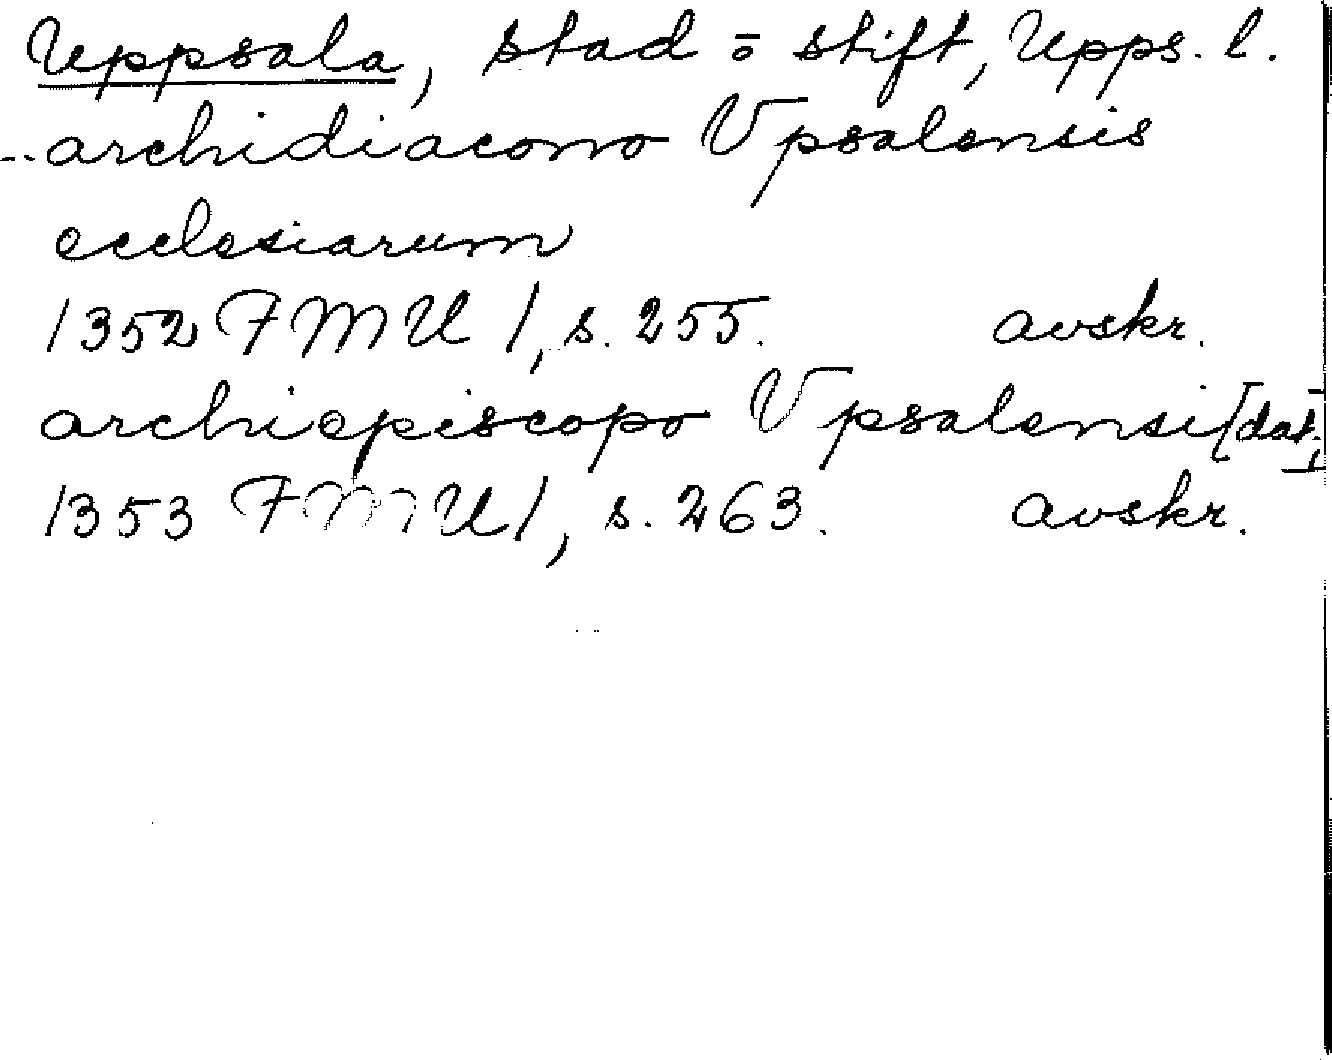 Uppsala, stad o stift, Upps. l.
..archidiacono Vpsalensis
ecclesiarum
1352 FMU 1, s. 255. avskr.
archiepiscopo Vpsalensi [dat.]
1353 FMU 1, s. 263. avskr.